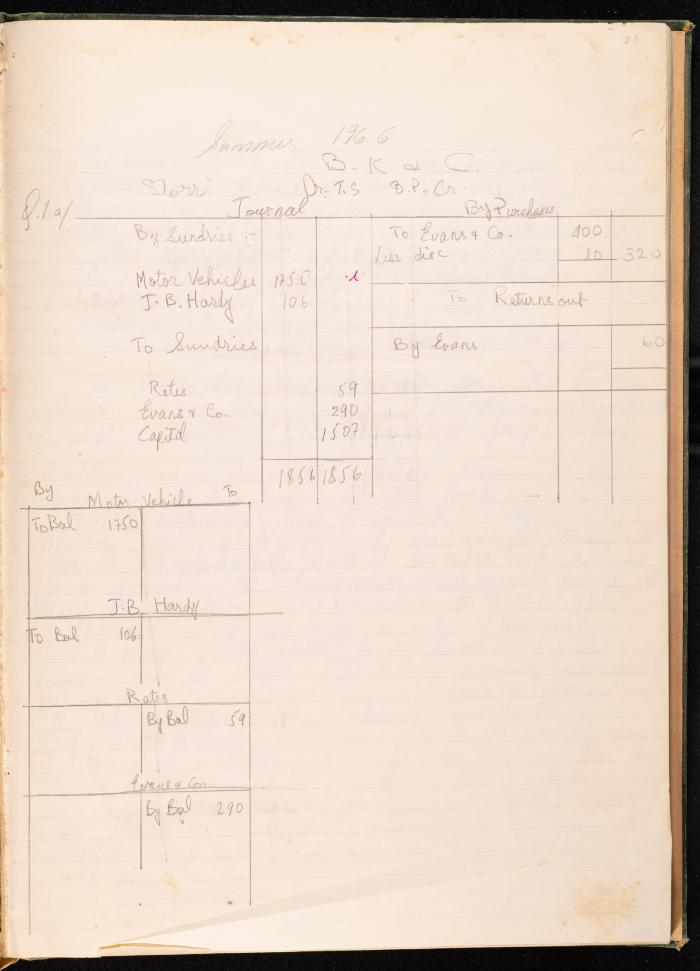 21
Summer 1966
B. K & C.
Dr. T.S D.P. Cr.
Q.1 a/ Journal
By Sundries :-
Motor Vehicles 1750
J. B. Hardy 106
To Sundries:
Rates 59
Evans & Co. 290
Capital 1507
1856 1856
By Purchases
To Evans & Co. 400
Less disc 80 320
To Returns out
By Evans 60
By Motor Vehicle To
To Bal 1750
J.B. Hardy
To Bal 106
Rates
By Bal 59
Evans & Co.
By Bal 290